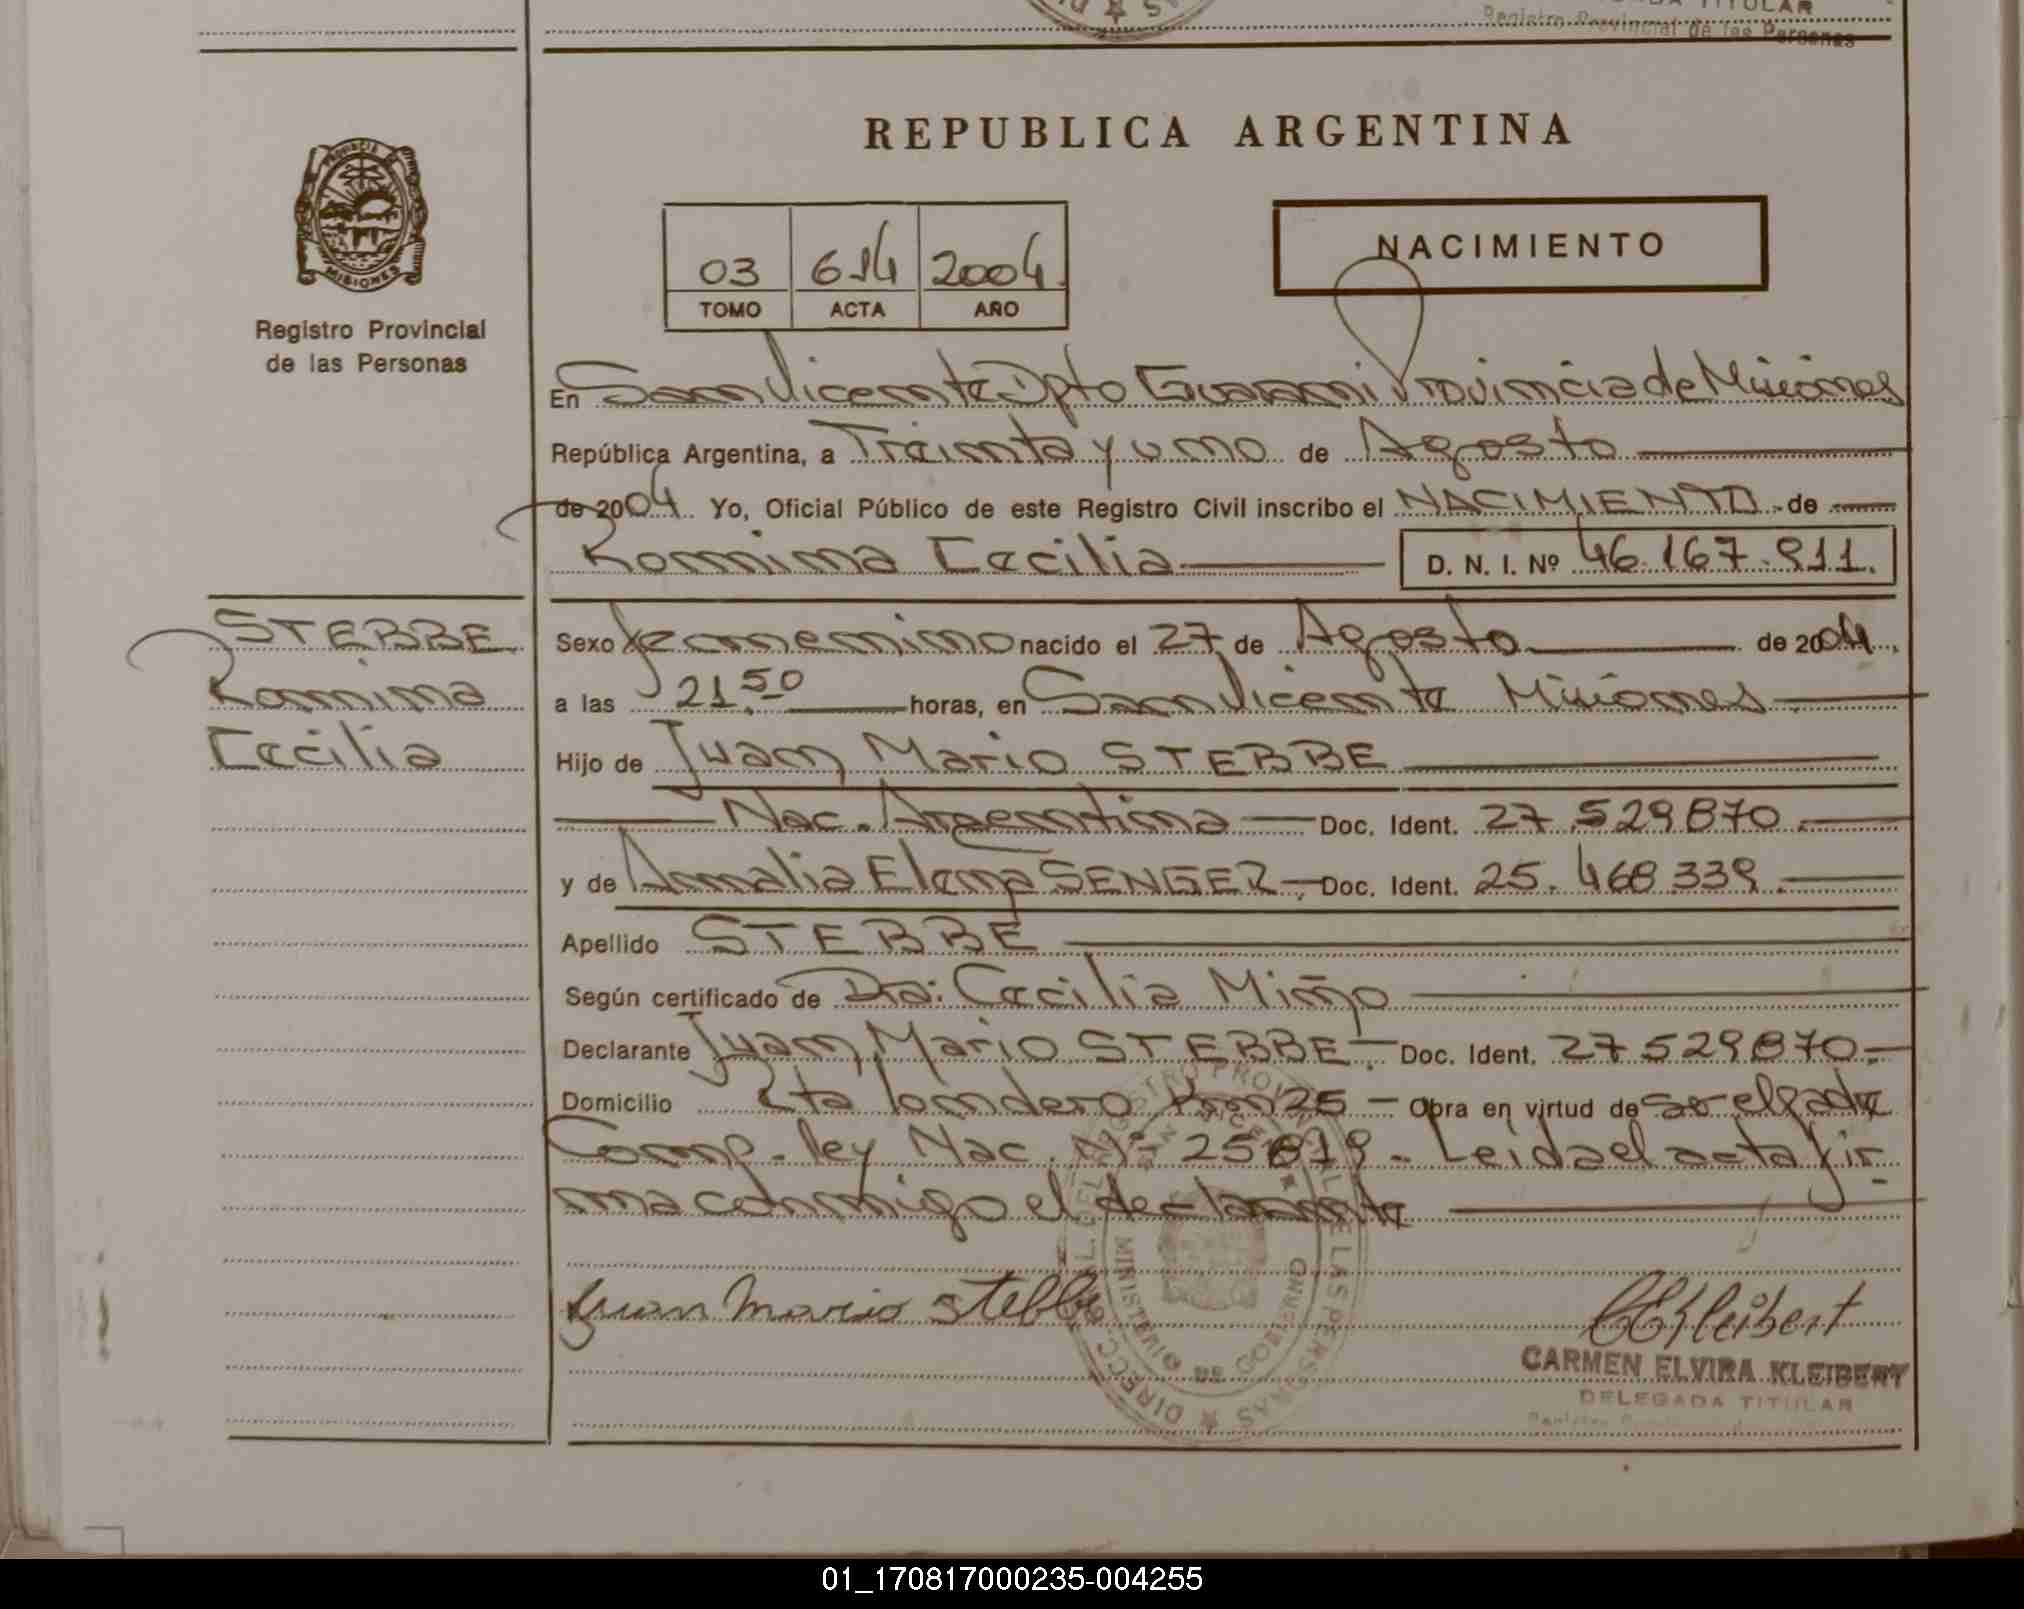 TITULAR
Registro Provincial de las Personas
PROVINCIA DE
MISIONES
Registro Provincial
de las Personas
REPUBLICA ARGENTINA
03 614 2004
TOMO ACTA AÑO
NACIMIENTO
En San Vicente Dpto Guarani Provincia de Misiones
República Argentina, a Treinta y uno de Agosto
de 2004. Yo, Oficial Público de este Registro Civil inscribo el NACIMIENTO de
Romina Cecilia D. N. I. Nº 46.167.911.
STEBBE
Romina
Cecilia
Sexo femenino nacido el 27 de Agosto de 2004.
a las 21.50 horas, en San Vicente Misiones
Hijo de Juan Mario STEBBE
Nac. Argentina Doc. Ident. 27.529870.
y de Analia Elena SENGER Doc. Ident. 25.468.339.
Apellido STEBBE
Según certificado de Dra: Cecilia Miño
Declarante Juan Mario STEBBE Doc. Ident. 27529870.
Domicilio Rta londero Km 25 - Obra en virtud de
Comp. ley Nac. Nº 25819. Leida el acta fir
ma conmigo el declarante
Juan Mario Stebbe
CEKleibert
CARMEN ELVIRA KLEIBERT
DELEGADA TITULAR
MINISTERIO DE GOBIERNO
01_170817000235-004255